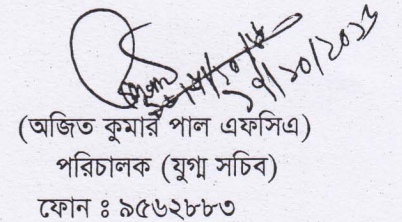 ১৭/১০/২০১৩
(অজিত কুমার পাল এফসিএ)
পরিচালক (যুগ্ম সচিব)
ফোন ঃ ৯৫৬২৮৮৩